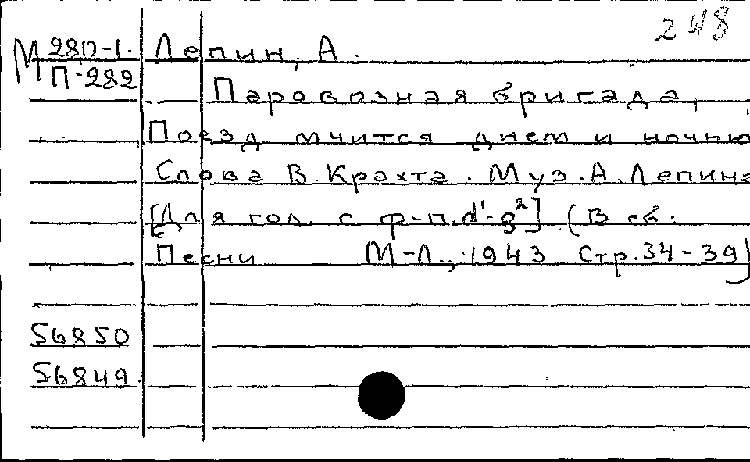 248
М 280-1. Лепин, А.
П-282
Паровозная бригада,
Поезд мчится днем и ночью
Слова В. Крахта. Муз. А. Лепина
[Для гол. с ф-п. d¹-g²] (В сб.
Песни М-Л., 1943 Стр. 34-39)
56850
56849.